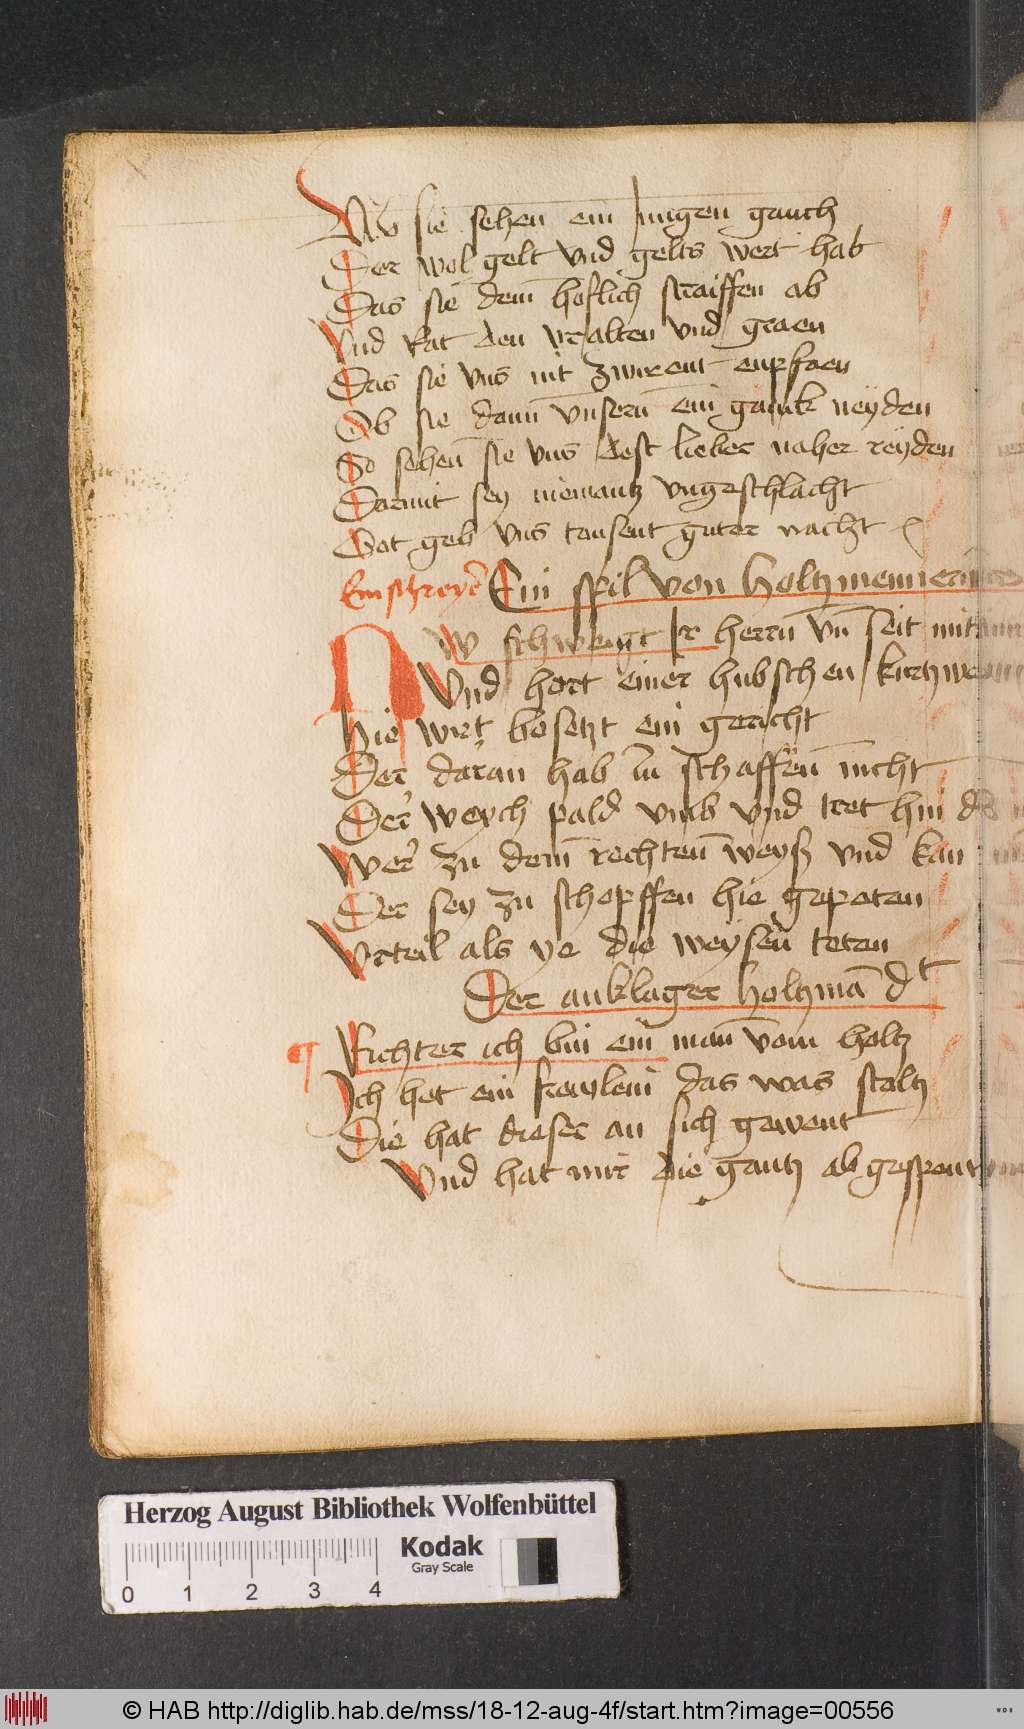 Wo sie sehen ein jungen gauch
Der wol gelt vnd gelts wert hab
Das sie dem hoflich straiffen ab
Vnd Rat den vralten vnd graen
Das sie vns nit zwirent enpfaen
Ob sie dann vnsern ein ganck neyden
So sehen sie vns dest lieber naher reyden
Darmit sey niemantz vngeschlacht
Got geb vns tausent guter nacht
Einschreyer Ein spil von holtzmennern
NW schweigt Ir herrn vn seit mit
Vnd hort einer hubschen kurtzweil
hie wirt besetzt ein gericht
Der daran hab zu schaffen nicht
Der weych pald vmb vnd tret hin
Wer zu dem rechten weyß vnd kan
Der sey zu schopffen hie gepoten
Vrteil als ye die weysen teten
Der anklager holtzman dt
Richter ich bin ein man vom holtz
Ich het ein freulein das was stoltz
Die hat dieser an sich gewent
Vnd hat mir die gantz ab gespent
Herzog August Bibliothek Wolfenbüttel
Kodak
Gray Scale
0 1 2 3 4
© HAB http://diglib.hab.de/mss/18-12-aug-4f/start.htm?image=00556